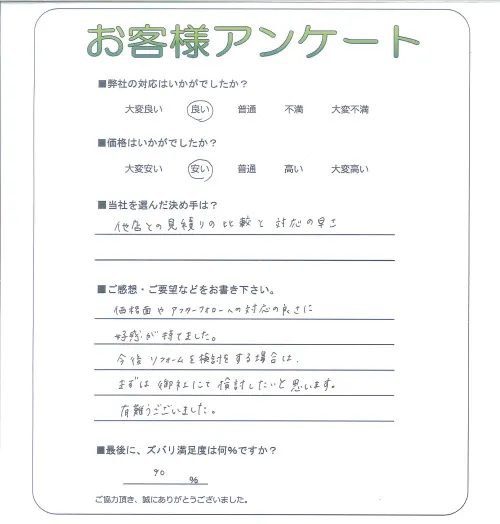 お客様アンケート
■弊社の対応はいかがでしたか？
大変良い 良い 普通 不満 大変不満
■価格はいかがでしたか？
大変安い 安い 普通 高い 大変高い
■当社を選んだ決め手は？
他店との見積りの比較と対応の早さ
■ご感想・ご要望などをお書き下さい。
価格面やアフターフォローへの対応の良さに
好感が持てました。
今後リフォームを検討をする場合は、
まずは御社にて検討したいと思います。
有難うございました。
■最後に、ズバリ満足度は何%ですか？
90 %
ご協力頂き、誠にありがとうございました。